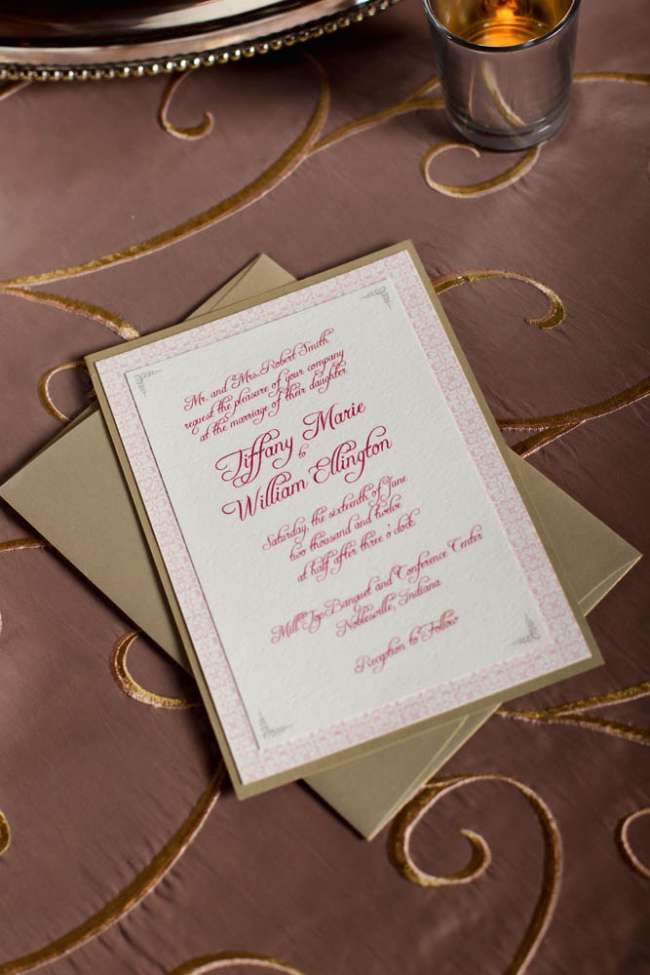 Mr. and Mrs. Robert Smith
request the pleasure of your company
at the marriage of their daughter
Tiffany Marie
to
William Ellington
Saturday, the sixteenth of June
two thousand and twelve
at half after three o'clock
Mill Top Banquet and Conference Center
Noblesville, Indiana
Reception to Follow